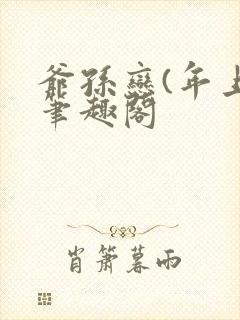 爺孫戀(年上
筆趣閣
肖簫暮雨